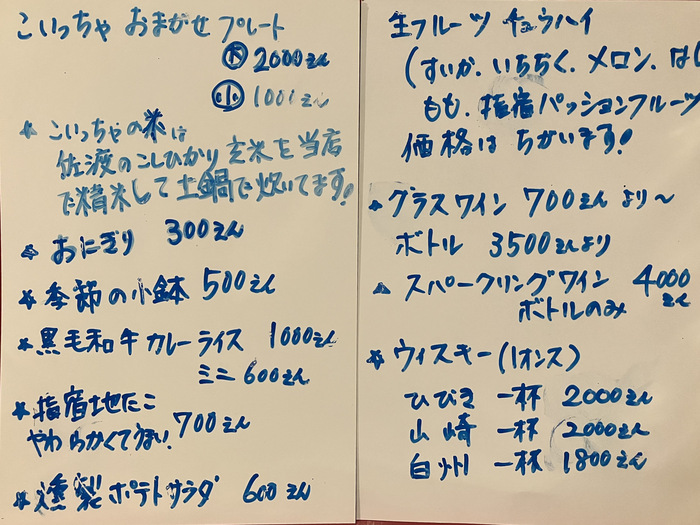 こいっちゃ おまかせ プレート
大 2000えん
小 1000えん
☆ こいっちゃの米は
佐渡のこしひかり 玄米を当店
で精米して土鍋で炊いてます!
☆ おにぎり 300えん
☆ 季節の小鉢 500えん
☆ 黒毛和牛カレーライス 1000えん
ミニ 600えん
☆ 指宿地たこ
やわらかくてうまい! 700えん
☆ 燻製ポテトサラダ 600えん
生フルーツ チュウハイ
(すいか. いちぢく. メロン.
もも. 指宿パッションフルーツ
価格は ちがいます!
☆ グラスワイン 700えん より〜
ボトル 3500えんより
☆ スパークリングワイン 4000
ボトルのみ えん
☆ ウィスキー(1オンス)
ひびき 一杯 2000えん
山崎 一杯 2000えん
白州 一杯 1800えん